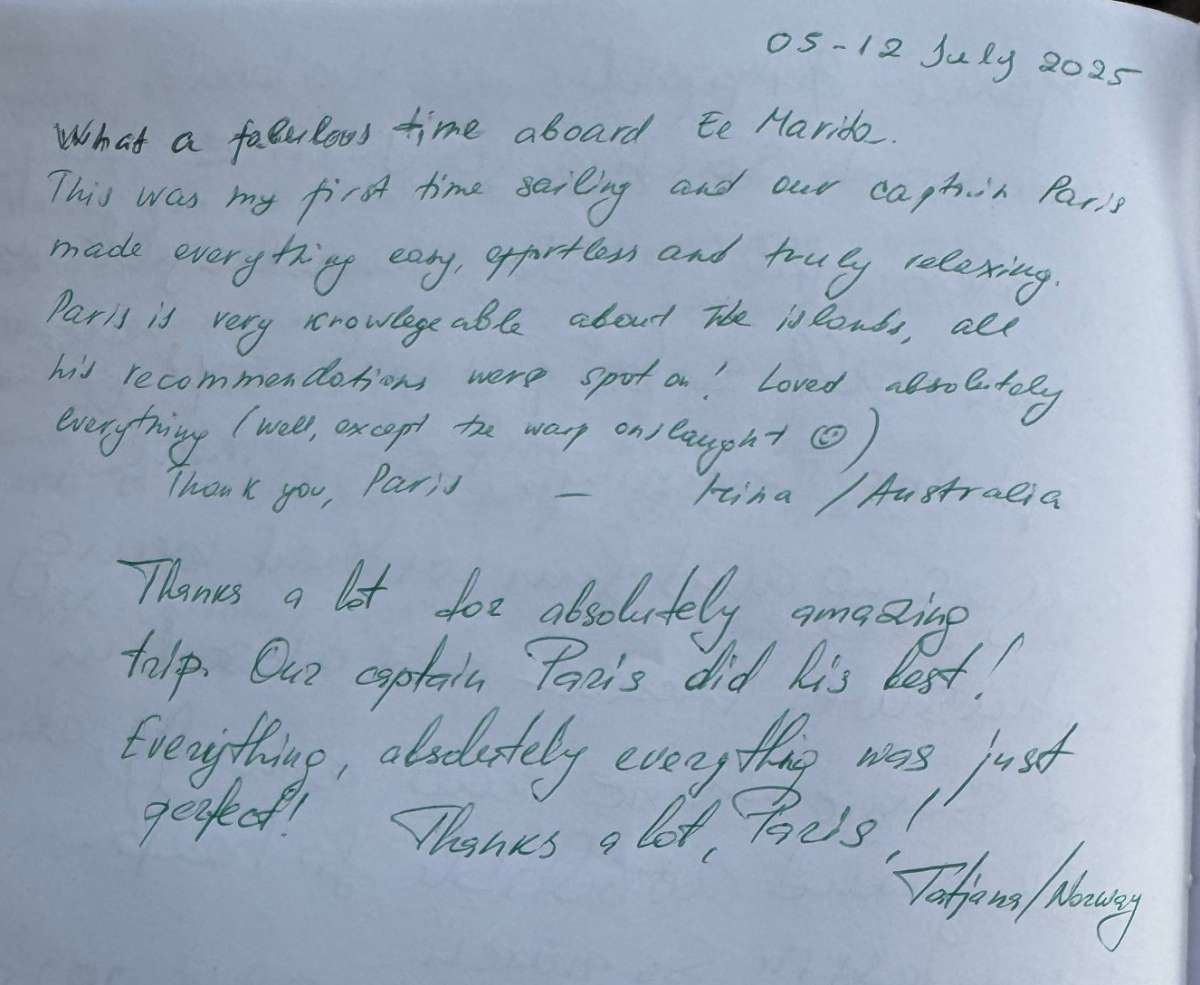 05-12 July 2025
What a fabulous time aboard Ee Marida.
This was my first time sailing and our captain Paris
made everything easy, effortless and truly relaxing.
Paris is very knowlegeable about the islands, all
his recommendations were spot on! Loved absolutely
everything (well, except the wasp onslaught ☺)
Thank you, Paris — Irina / Australia
Thanks a lot for absolutely amazing
trip. Our captain Paris did his best!
Everything, absolutely everything was just
perfect! Thanks a lot, Paris!
Tatjana/Norway